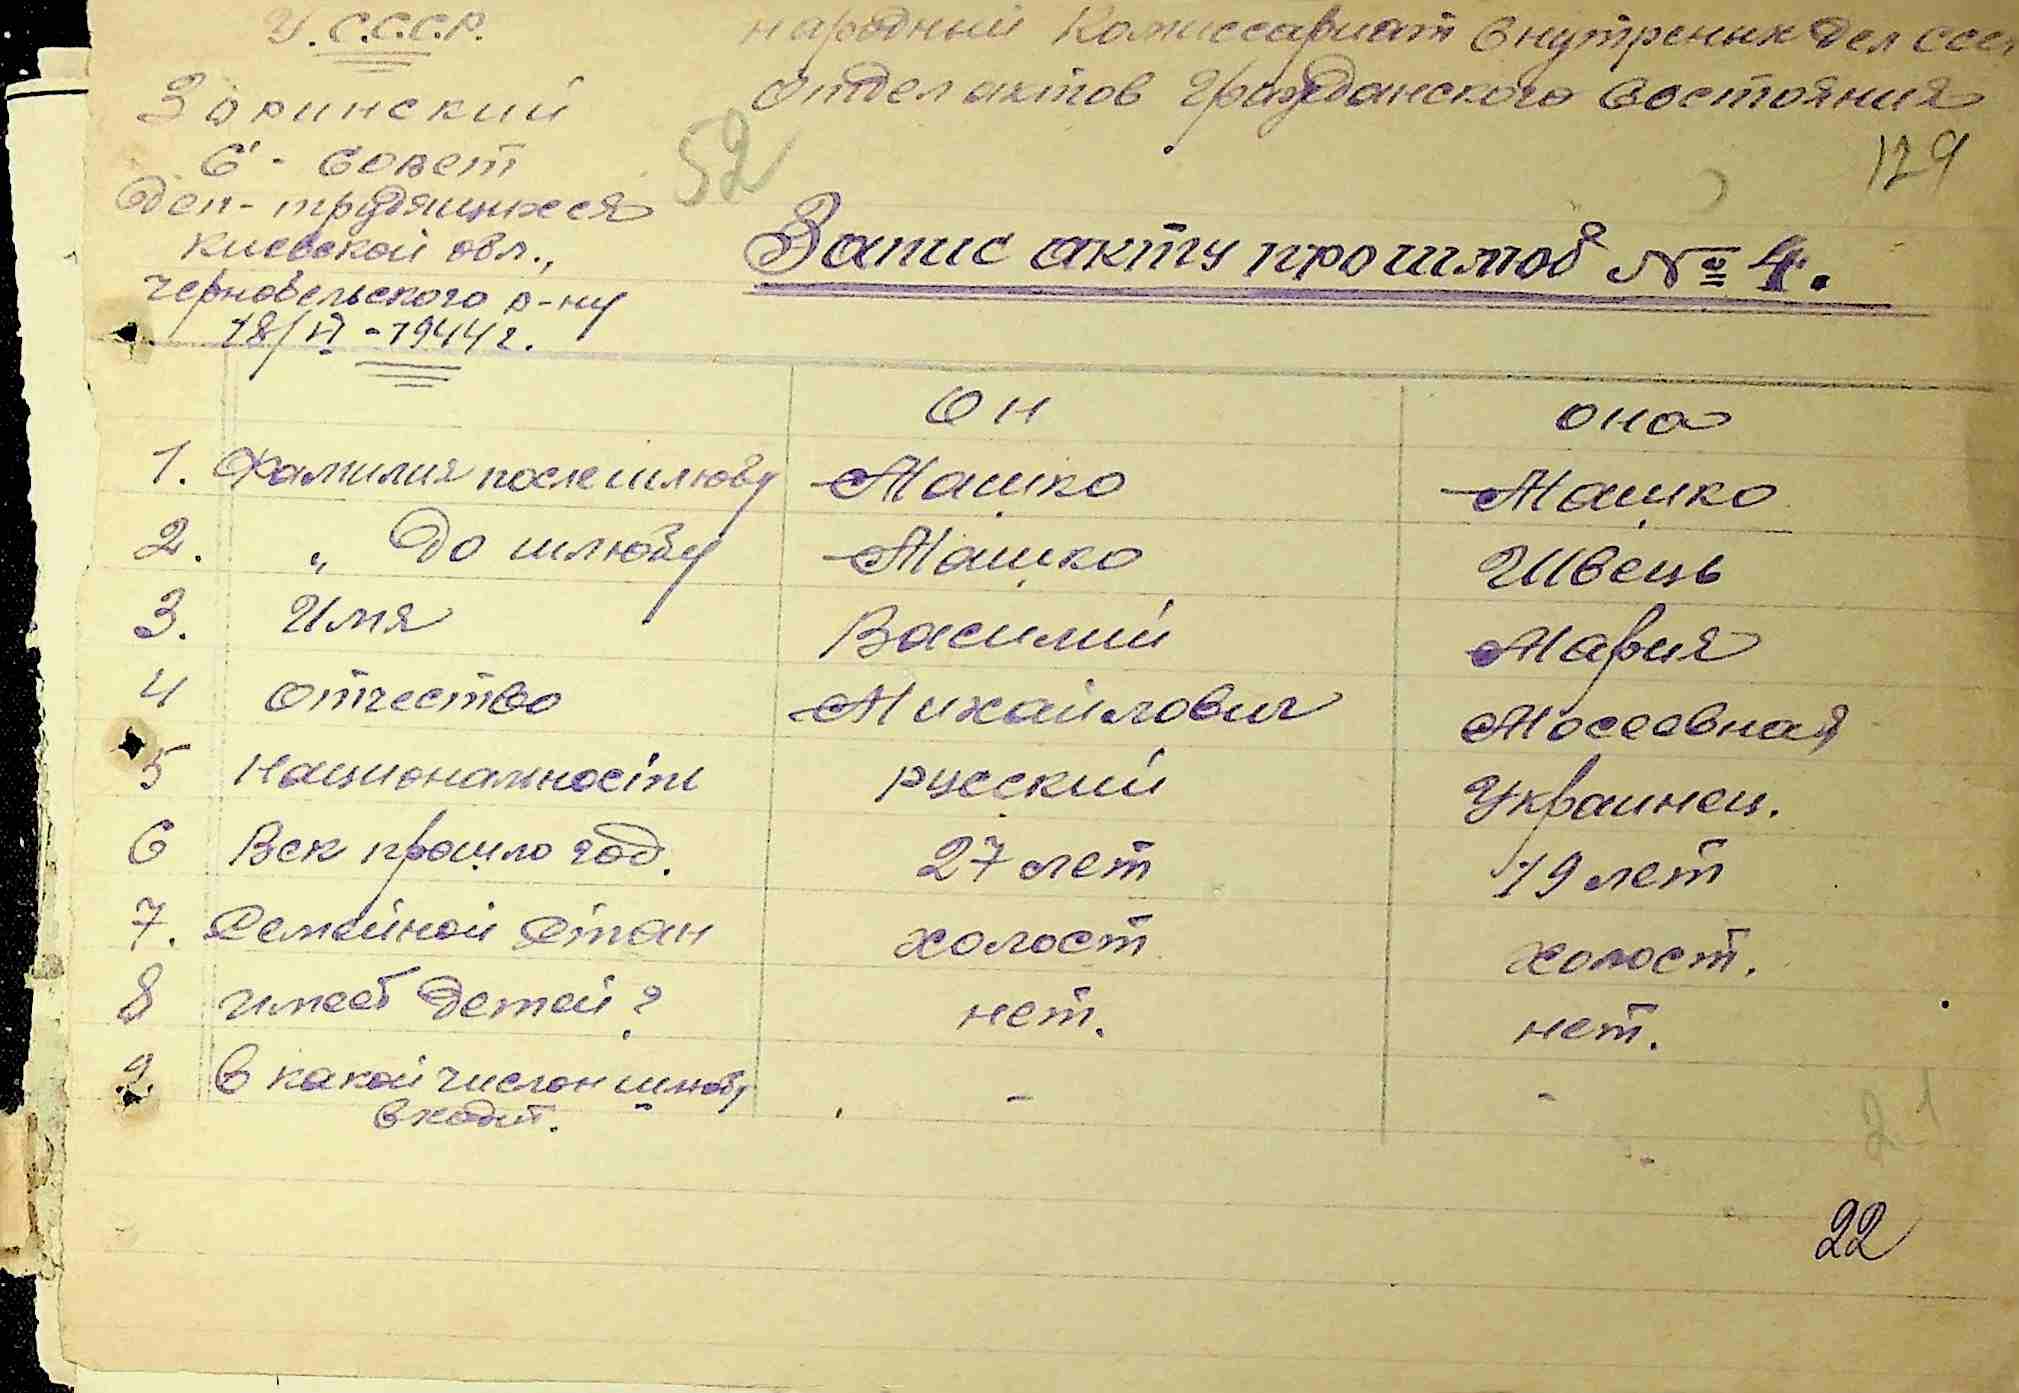 У.С.С.Р.
Зоринский
С-Совет
Деп-трудящихся
Киевской обл.,
Чернобельского р-ну
18/VI-1944 г.
народный Комиссариат Внутреных Дел ССС
Отдел актов Гражданского Состояния
52
129
Запис акту про шлюб № 4.
Он Она
1. Фамилия после шлюбу Машко Машко
2. „ До шлюбу Машко Швець
3. Имя Василий Мария
4 Отчество Михайлович Мосеевная
5 Националность русский Украинец.
6 Век прошло год. 27 лет 19 лет
7. Семейной Стан холост холост.
8 имеет Детей? нет. нет.
9. В какой числом шлюбу - -
входит.
21
22